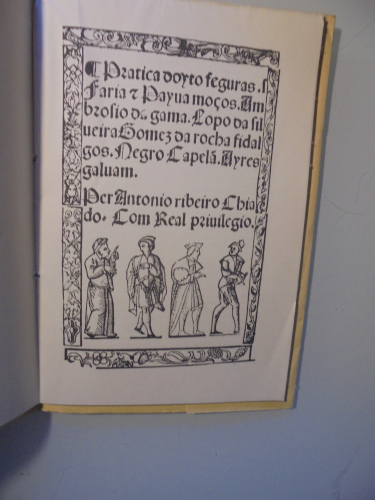 ¶ Pratica doyto feguras .ſ.
Faria ⁊ Payua moços. Am
broſio da gama. Lopo da ſil
ueira Gomez da rocha fidal
gos. Negro Capelã. Ayres
galuam.
Per Antonio ribeiro Chia
do. Com Real priuilegio.